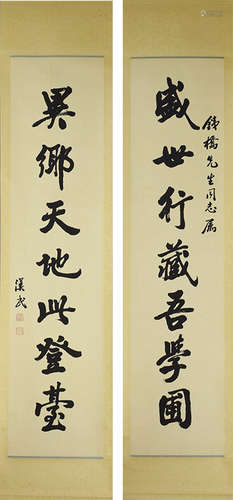 盛世行藏吾學圃
鐵橋先生同志屬
異鄉天地此登臺
漢民